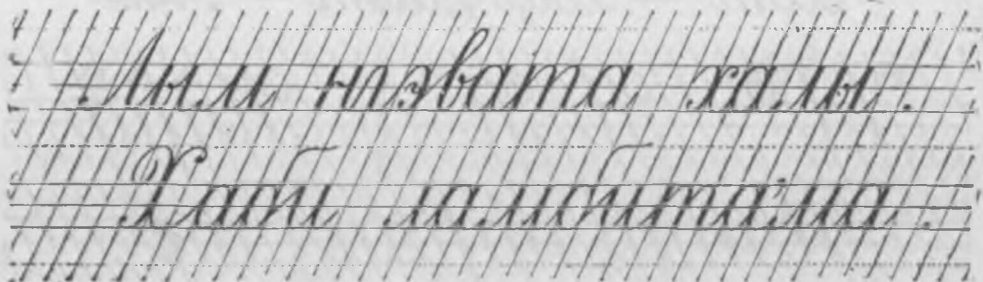 Лым нгэвата халы.
Хаби ламбитама.